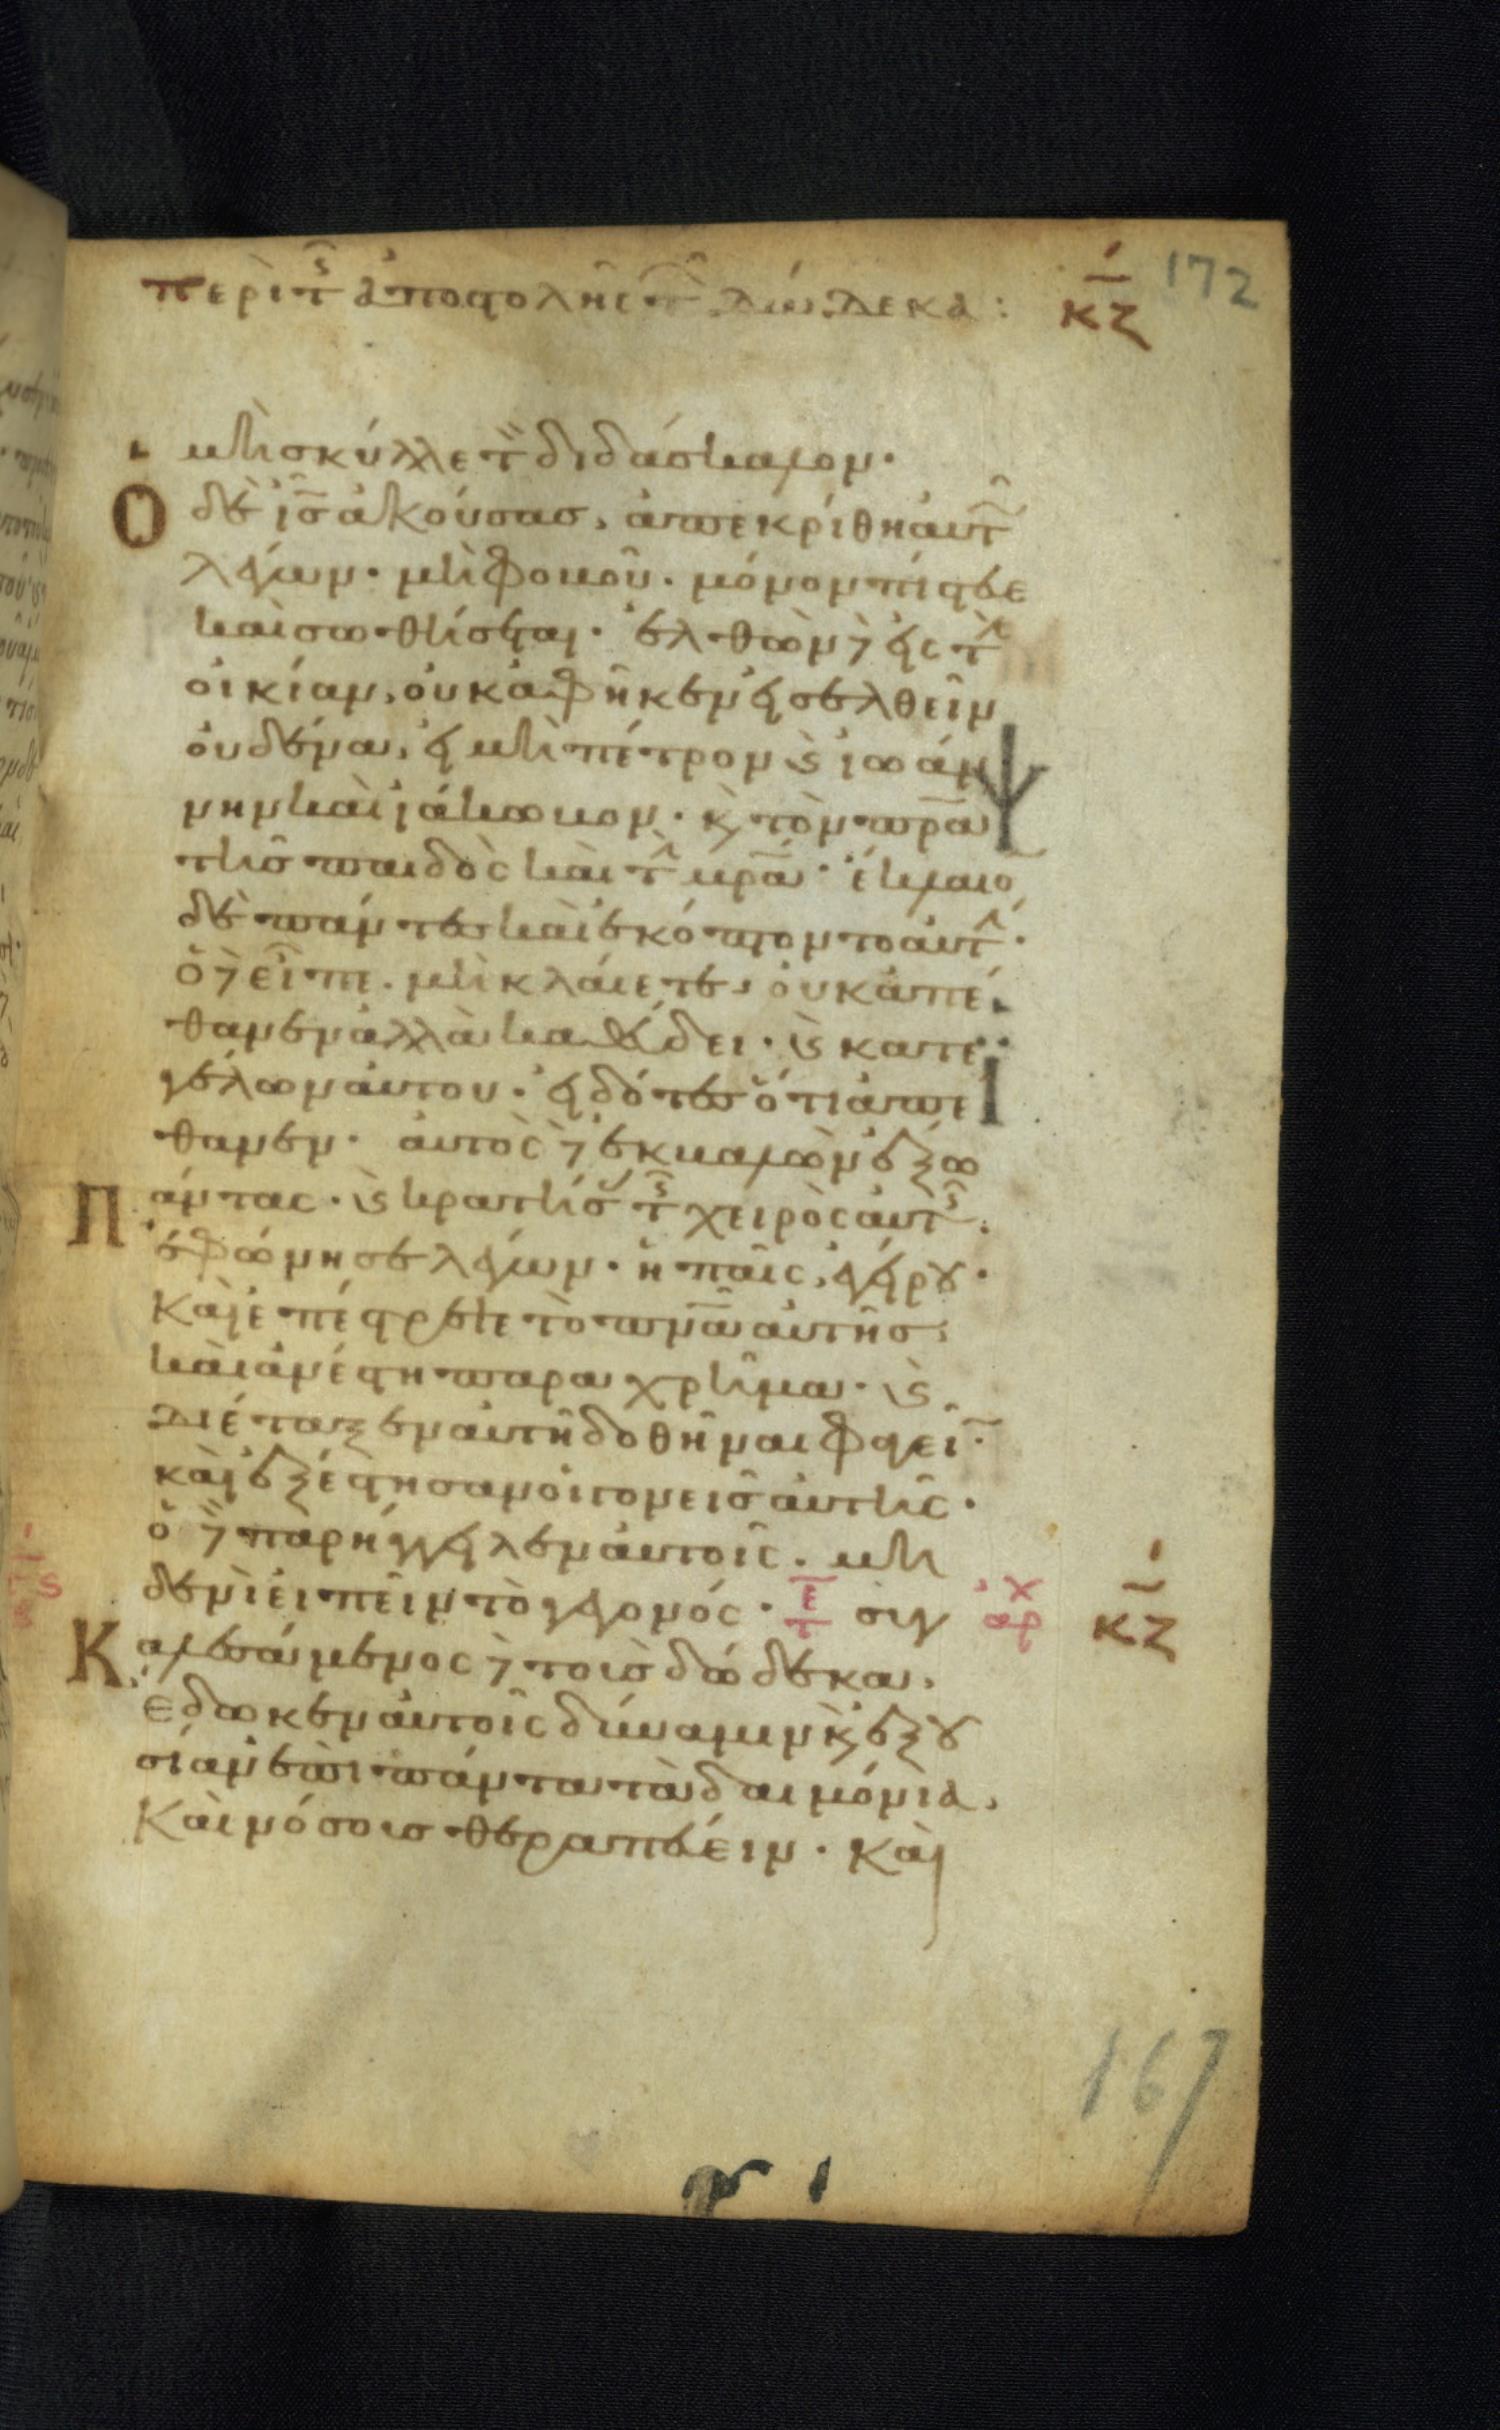 περὶ τ ἀποστολῆς τ δώδεκα : κζ 172
μὴ σκύλλε τ διδάσκαλον·
Ο δὲ ις ἀκούσας, ἀπεκρίθη αὐτ
λέγων· μὴ φοβοῦ. μόνον πίστευε
καὶ σωθήσεται· ἐλθὼν δ εἰς τ
οἰκίαν, οὐκ ἀφῆκεν εἰσελθεῖν
οὐδένα, εἰ μὴ πέτρον ϗ ἰωάν
νην καὶ ἰάκωβον· ϗ τὸν πρα
τῆς παιδὸς καὶ τ μρα· ἔκλαιο
δὲ πάντες καὶ ἐκόπτοντο αὐτ·
ὁ δ εἶπε. μὴ κλαίετε, οὐκ ἀπέ
θανεν ἀλλὰ καθεύδει· ϗ κατε
γέλων αὐτου· εἰδότες ὅτι ἀπέ
θανεν· αὐτὸς δ ἐκβαλὼν ἔξω
Πάντας· ϗ κρατήσ τ χειρὸς αὐτ,
ἐφώνησε λέγων· ἡ παῖς, ἐγείρου·
Καὶ ἐπέστρεψε τὸ πνα αὐτῆς,
καὶ ἀνέστη παραχρῆμα· ϗ
διέταξεν αὐτῆ δοθῆναι φαγεῖ·
καὶ ἐξέστησαν οἱ γονεῖς αὐτῆς·
ὁ δ παρήγγειλεν αὐτοῖς. μη
δενὶ εἰπεῖν τὸ γεγονός· ε τ αρχ κζ
Καλεσάμενος δ τοὺς δώδεκα,
ἔδωκεν αὐτοῖς δύναμιν ϗ ἐξου
σίαν ἐπὶ πάντα τὰ δαιμόνια,
Καὶ νόσους θεραπεύειν· Καὶ
167